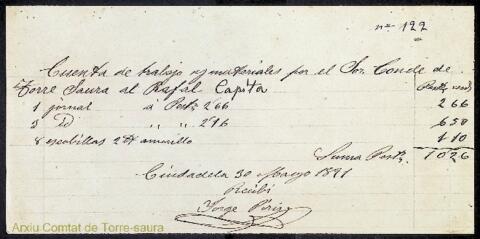 nº 122
Cuenta de trabajo y materiales por el Sor. Conde de
Torre Saura al Rafal Capitá
1 jornal á Pestz 2'66 2 66
3 id " " 2'16 6 50
8 escobillas 2 amarillo 1 10
Suma Pestz. 10 26
Ciudadela 30 Mayo 1891
Recibí
Jorge
Arxiu Comtat de Torre-saura